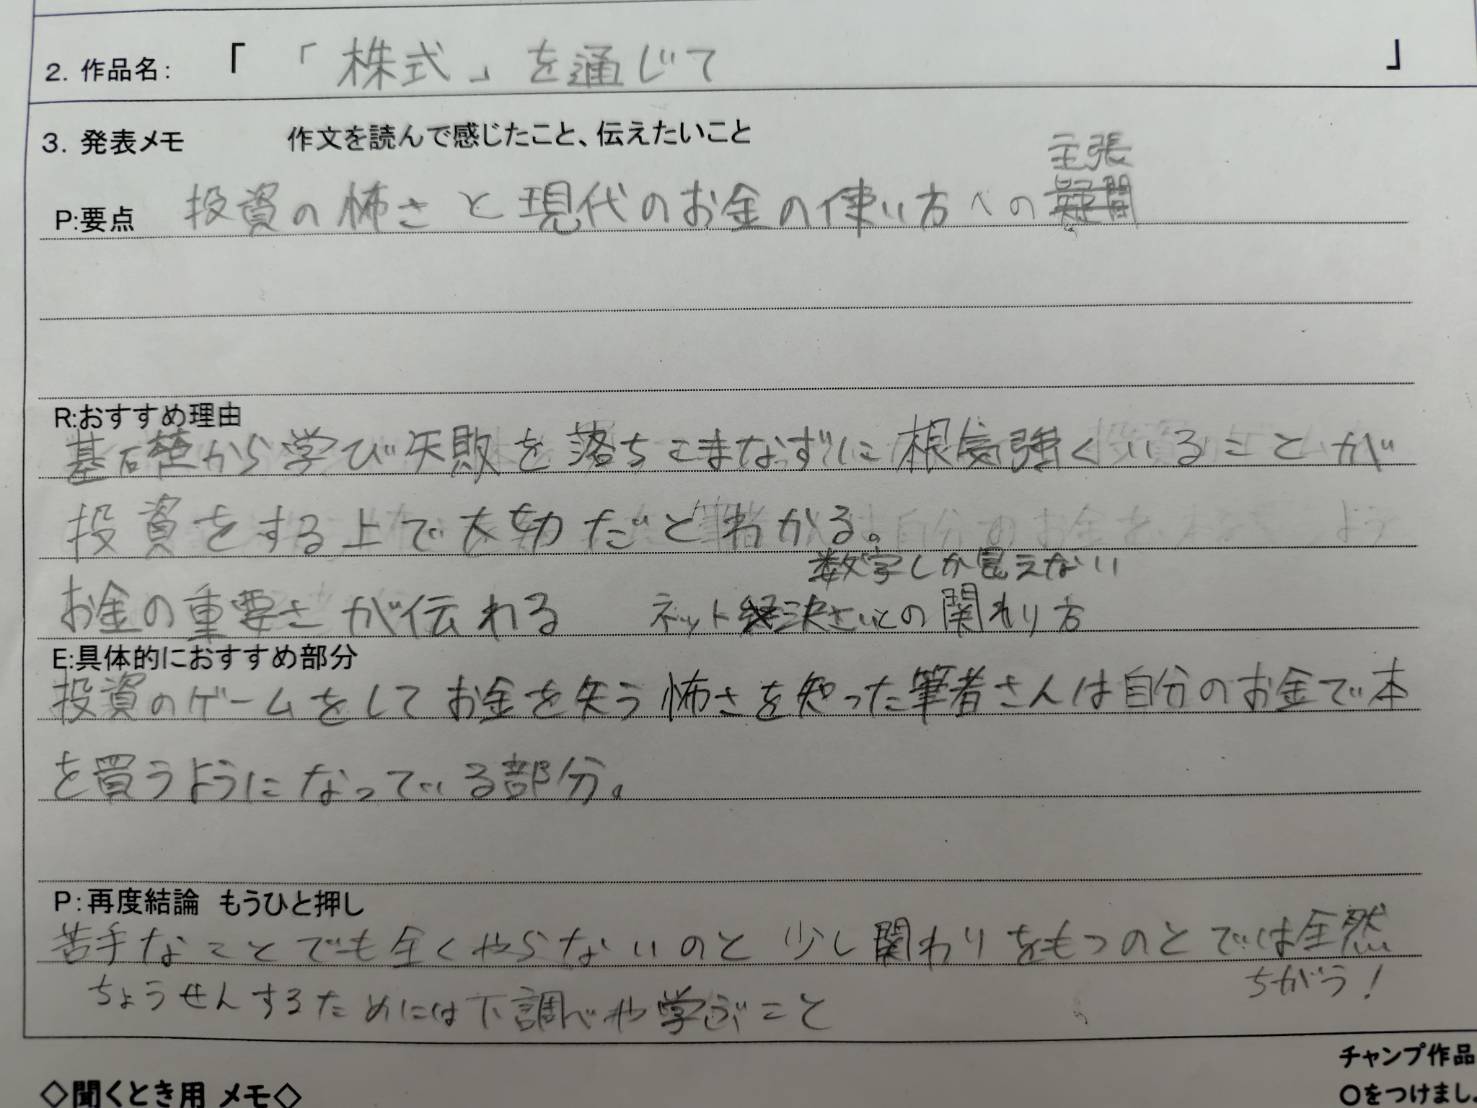 2. 作品名: 「 「株式」を通じて 」
3. 発表メモ 作文を読んで感じたこと、伝えたいこと
主張
P:要点 投資の怖さと現代のお金の使い方への疑問
R:おすすめ理由
基礎から学び失敗を落ちこまなずに根気強くいることが
投資をする上で大切だとわかる。
数字しか見えない
お金の重要さが伝れる ネット決さいとの関わり方
E:具体的におすすめ部分
投資のゲームをしてお金を失う怖さを知った筆者さんは自分のお金で本
を買うようになっている部分。
P:再度結論 もうひと押し
苦手なことでも全くやらないのと少し関わりをもつのとでは全然
ちがう!
ちょうせんするためには下調べや学ぶこと
◇聞くとき用 メモ◇
チャンプ作品
○をつけまし